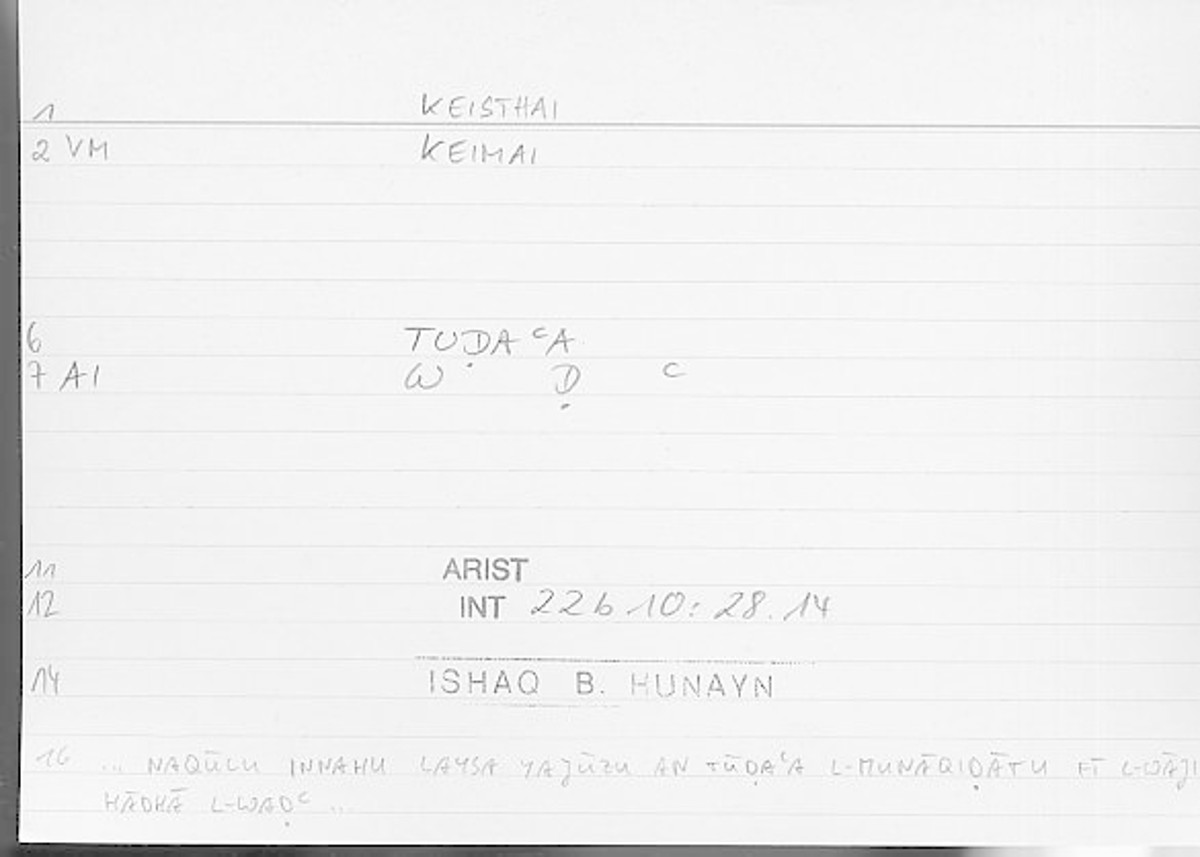 1 KEISTHAI
2 VM KEIMAI
6 TUḌAᶜA
7 AI W Ḍ ᶜ
11 ARIST
12 INT 22b10: 28.14
14 ISHAQ B. HUNAYN
16 ... NAQŪLU INNAHU LAYSA YAJŪZU AN TŪḌAᶜA L-MUNĀQIḌĀTU FĪ L-WĀJI
HĀDHĀ L-WAḌᶜ ...